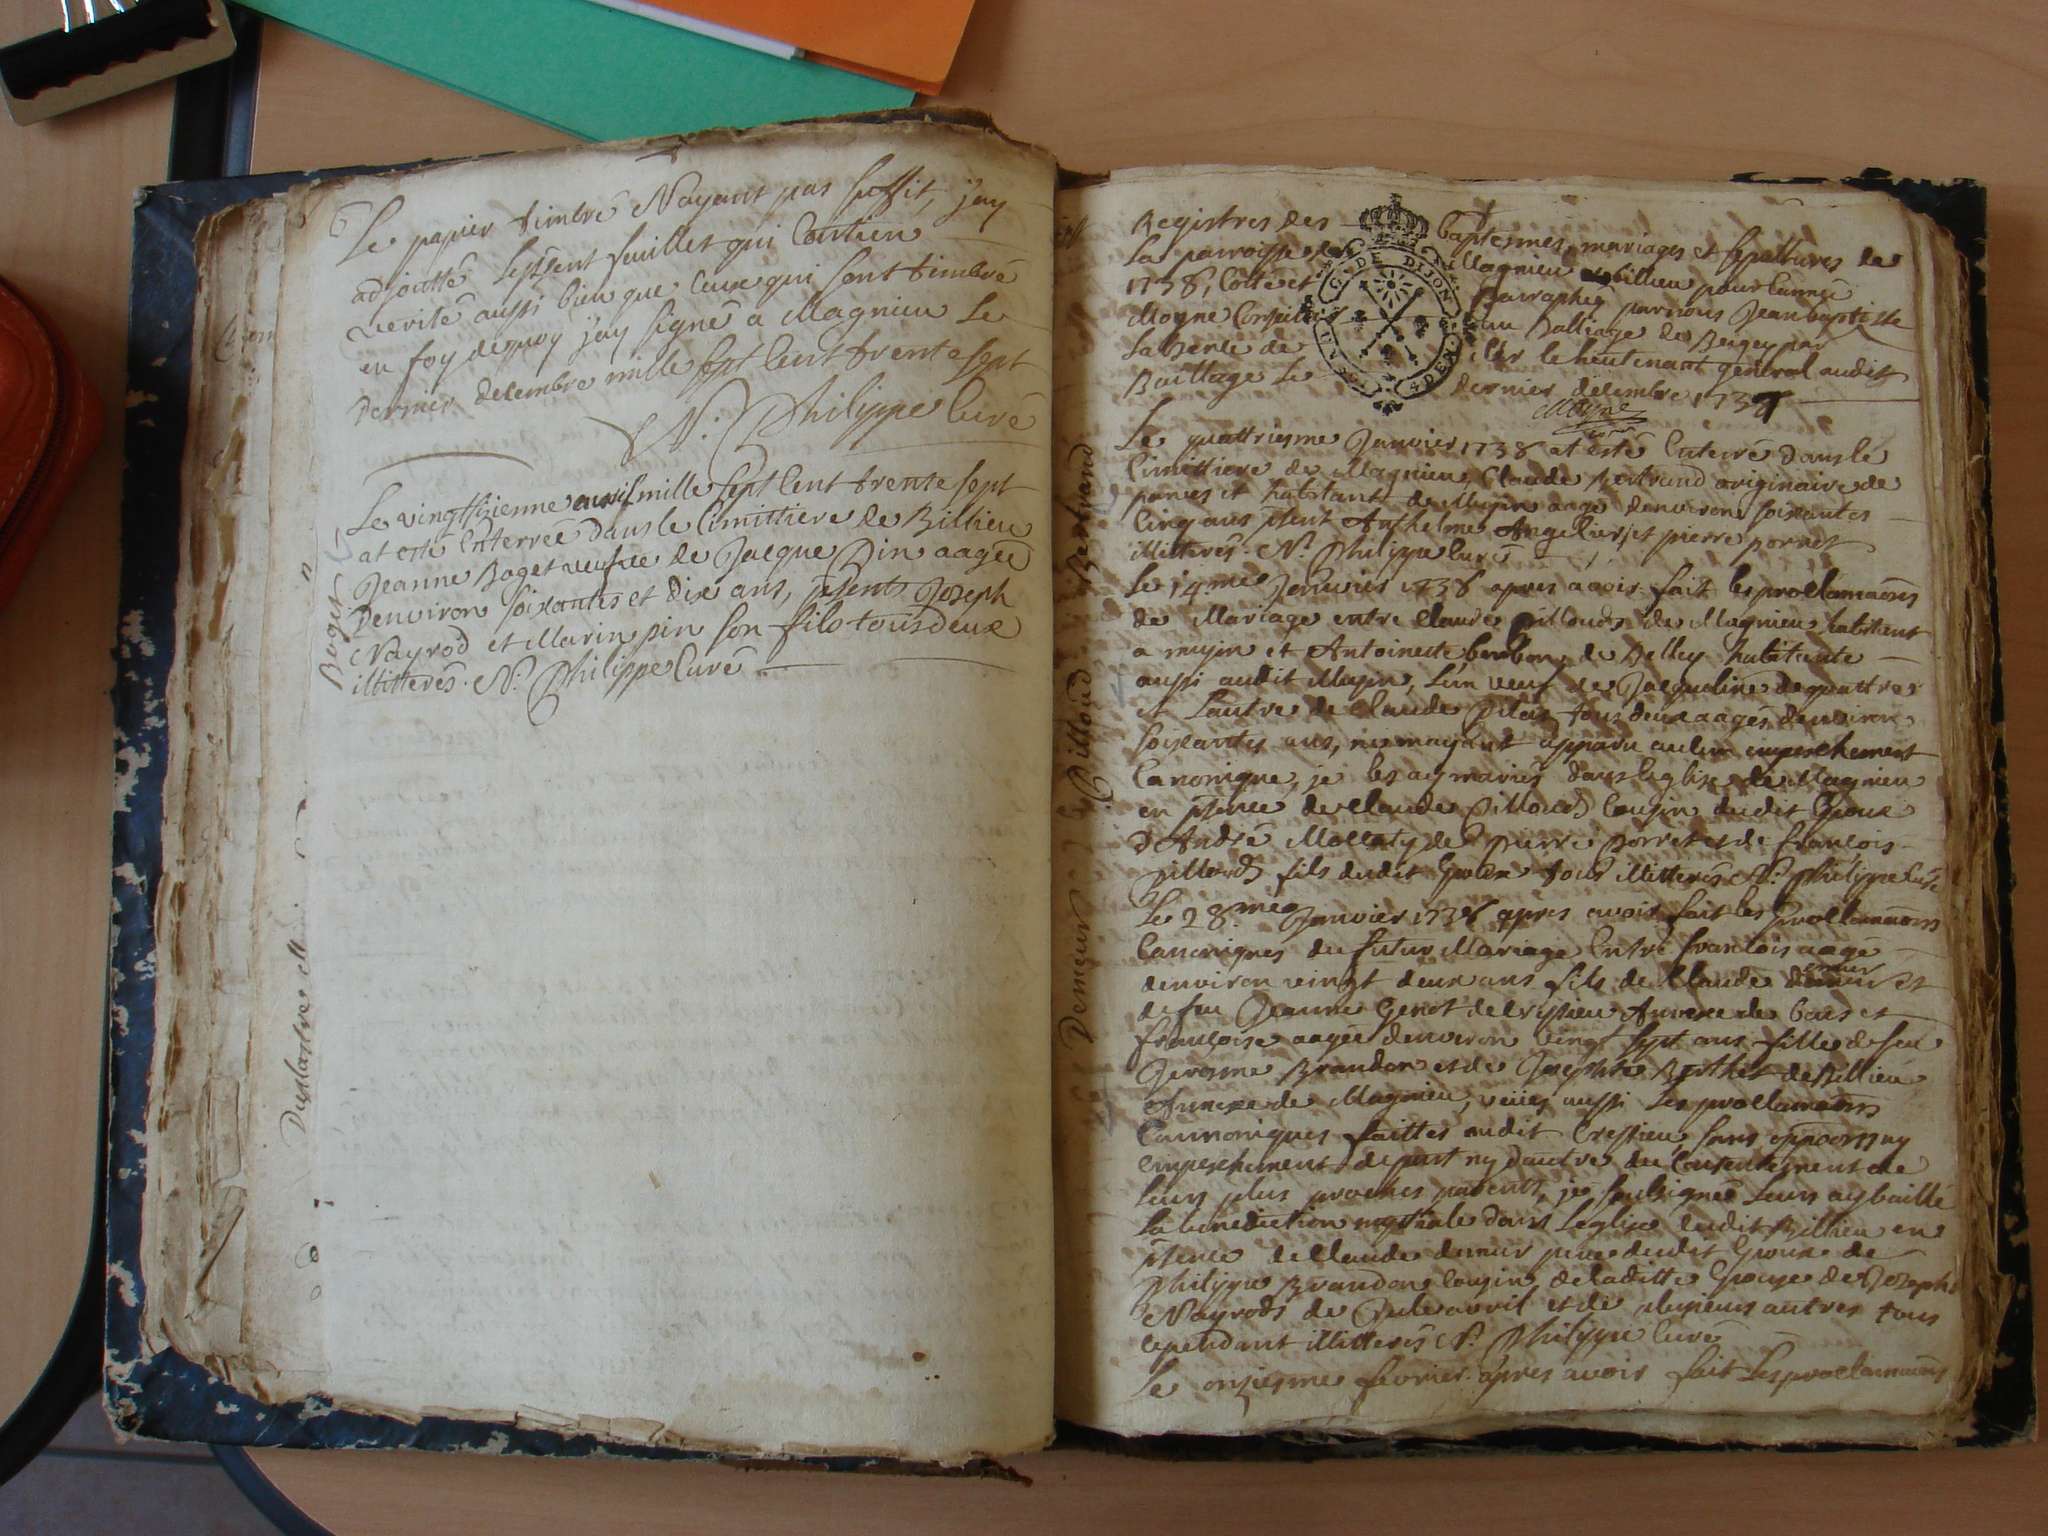 Le papier timbré Nayant pas suffit, j'ay
adjoutté les sent feuilles qui Contien
verité aussi bien que Ceux qui sont timbré
en foy dequoy j'ay signé a Magnieu Le
Dernier decembre mille sept Cent trente sept
N. Philippe Curé
Boget
Le vingt sizienne avril mille sept Cent trente sept
at esté Enterrée dans le Cimittiere de Billieu
Jeanne Boget veufve de Jacque Pin aagée
Denviron soixantes et dix ans, psents Joseph
Nayrod et Marin pin son fils tous deux
illitterés. N. Philippe Curé
Registres des baptesmes, mariages et sepultures de
La parroisse de Magnieu Billieu pour Lannée
1738, Cotté et Parraphez par nous Jean baptiste
Moyne Conseiller au Balliage de Bugey par
Labsence de le lieutenant general audit
Bailliage Le dernier decembre 1737
Moyne
G. DE DIJON
Bertrand
Le quattriesme Janvier 1738 at esté Enterré dans le
Cimittiere de Magnieu Claude Bertrand originaire de
et habitant de Musin aagé denviron soixantes
Cinq ans psent Anthelme Angelier et pierre porret
illitterés. N. Philippe Curé
Pilloud
Le 14.me Janvier 1738 apres avoir fait les proclamaons
de Mariage entre Claude Pilloud de Magnieu habitant
a musin et Antoinette bonbon de Belley habitante
aussi audit Musin, Lun veuf de Jacqueline dequattre
et Lautre de Claude Pilat tous deux aagés denviron
soixantes ans, ne mayant apparu aucun empeschement
Canonique, je les ay mariés dans leglise de Magnieu
en psence de Claude Pilloud Cousin dudit Epoux
D'André Mollaty de Pierre Porret et de françois
pilloud fils dudit Epoux tous illitterés N. Philippe Curé
Demeur
Le 28.me Janvier 1738 apres avoir fait les proclamaons
Canoniques du futur Mariage Entre francois aagé
denviron vingt deux ans fils de Claude demeur et
de feu Jeanne Genot de Cressieu Annexe de et
françoise aagée denviron vingt sept ans fille de feu
Jerosme Brandon et de Josephte Berthet de Billieu
Annexe de Magnieu, veües aussi Les proclamaons
Cannoniques faittes audit Cressieu, sans opposon ny
empeschement de part ny dautre du Consentement de
Leurs plus proches parents, je soubsigné Leurs ay baillé
La benediction nuptiale dans Leglise dudit Billieu en
psence de Claude demeur pere dudit Epoux de
Philippe Brandon Cousin de laditte Epouse de Joseph
Nayrod de et de plusieurs autres tous
Cependant illitterés N. Philippe Curé
Le onziesme fevrier apres avoir fait Les proclamaons